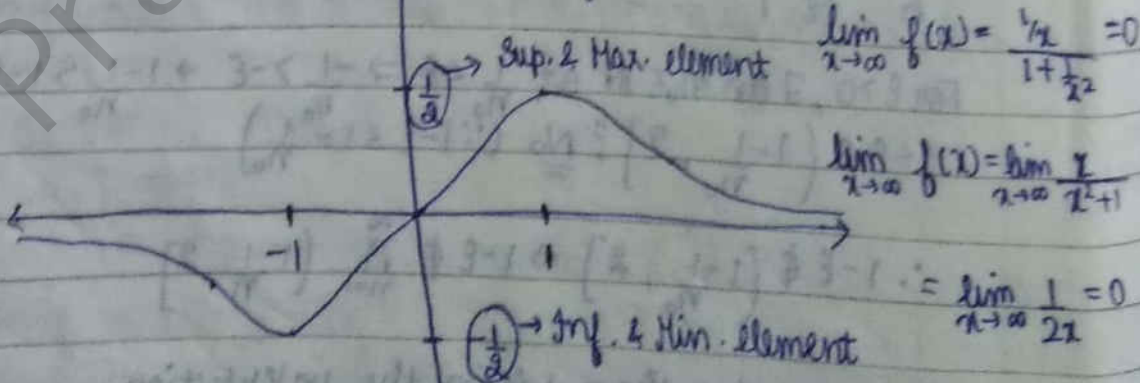 Sup. & Max. element
1/2
lim x→∞ f(x) = (1/x)/(1+1/x²) = 0
lim x→∞ f(x) = lim x→∞ x/(x²+1)
= lim x→∞ 1/2x = 0
-1
1
-1/2 → Inf. & Min. element